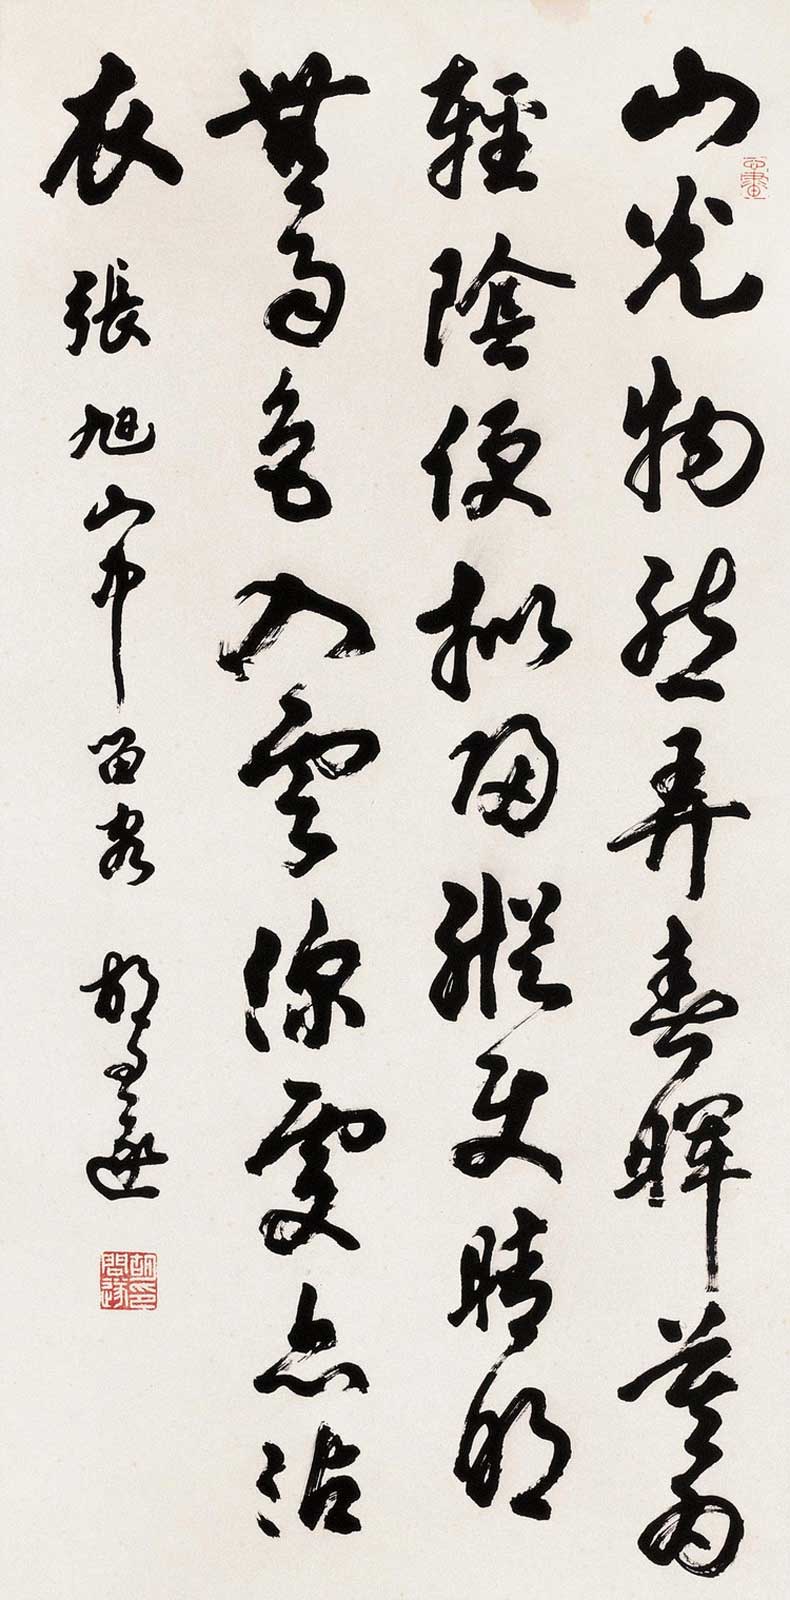 山光物態弄春暉莫為
輕陰便擬歸縱使晴明
無雨色入雲深處亦沾
衣 張旭山中留客 胡問遂
胡問遂印